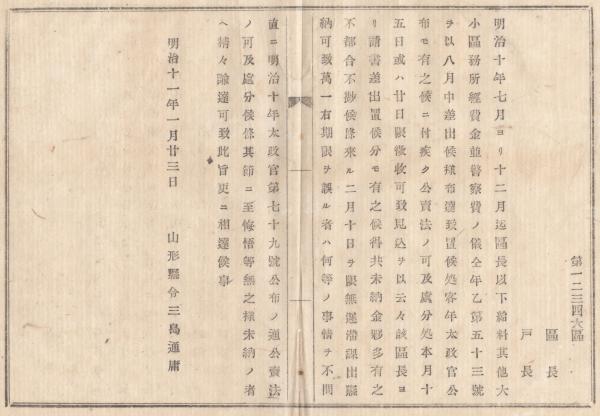 第一二三四大區
區長
戸長
明治十年七月ヨリ十二月迄區長以下給料其他大
小區務所經費金並警察費ノ儀仝年乙第五十三號
ヲ以八月中差出候樣布達致置候処客年太政官公
布モ有之候ニ付疾ク公賣法ノ可及處分処本月十
五日或ハ廿日限徴收可致見込ヲ以云々該區長ヨ
リ請書差出置候分モ有之候得共未納金夥多有之
不都合不尠候條來ル二月十日ヲ限無遲滯課出縣
納可致萬一右期限ヲ誤ル者ハ何等ノ事情ヲ不問
直ニ明治十年太政官第七十九號公布ノ通公賣法
ノ可及處分候條其節ニ至悔悟等無之樣未納ノ者
ヘ精々諭達可致此旨更ニ相達候事
明治十一年一月廿三日
山形縣令三島通庸